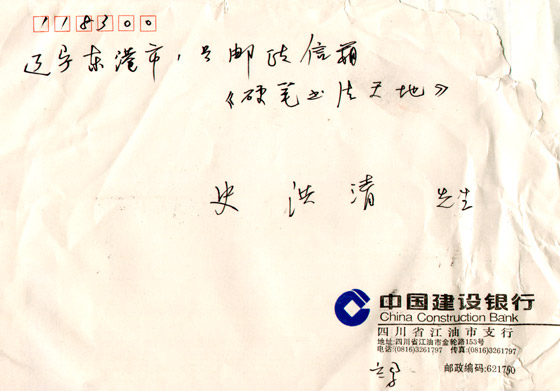 118300
辽宁东港市1号邮政信箱
《硬笔书法天地》
史洪清 先生
中国建设银行
China Construction Bank
四川省江油市支行
地址:四川省江油市金轮路153号
电话:(0816)3261797 传真:(0816)3261797
邮政编码:621700